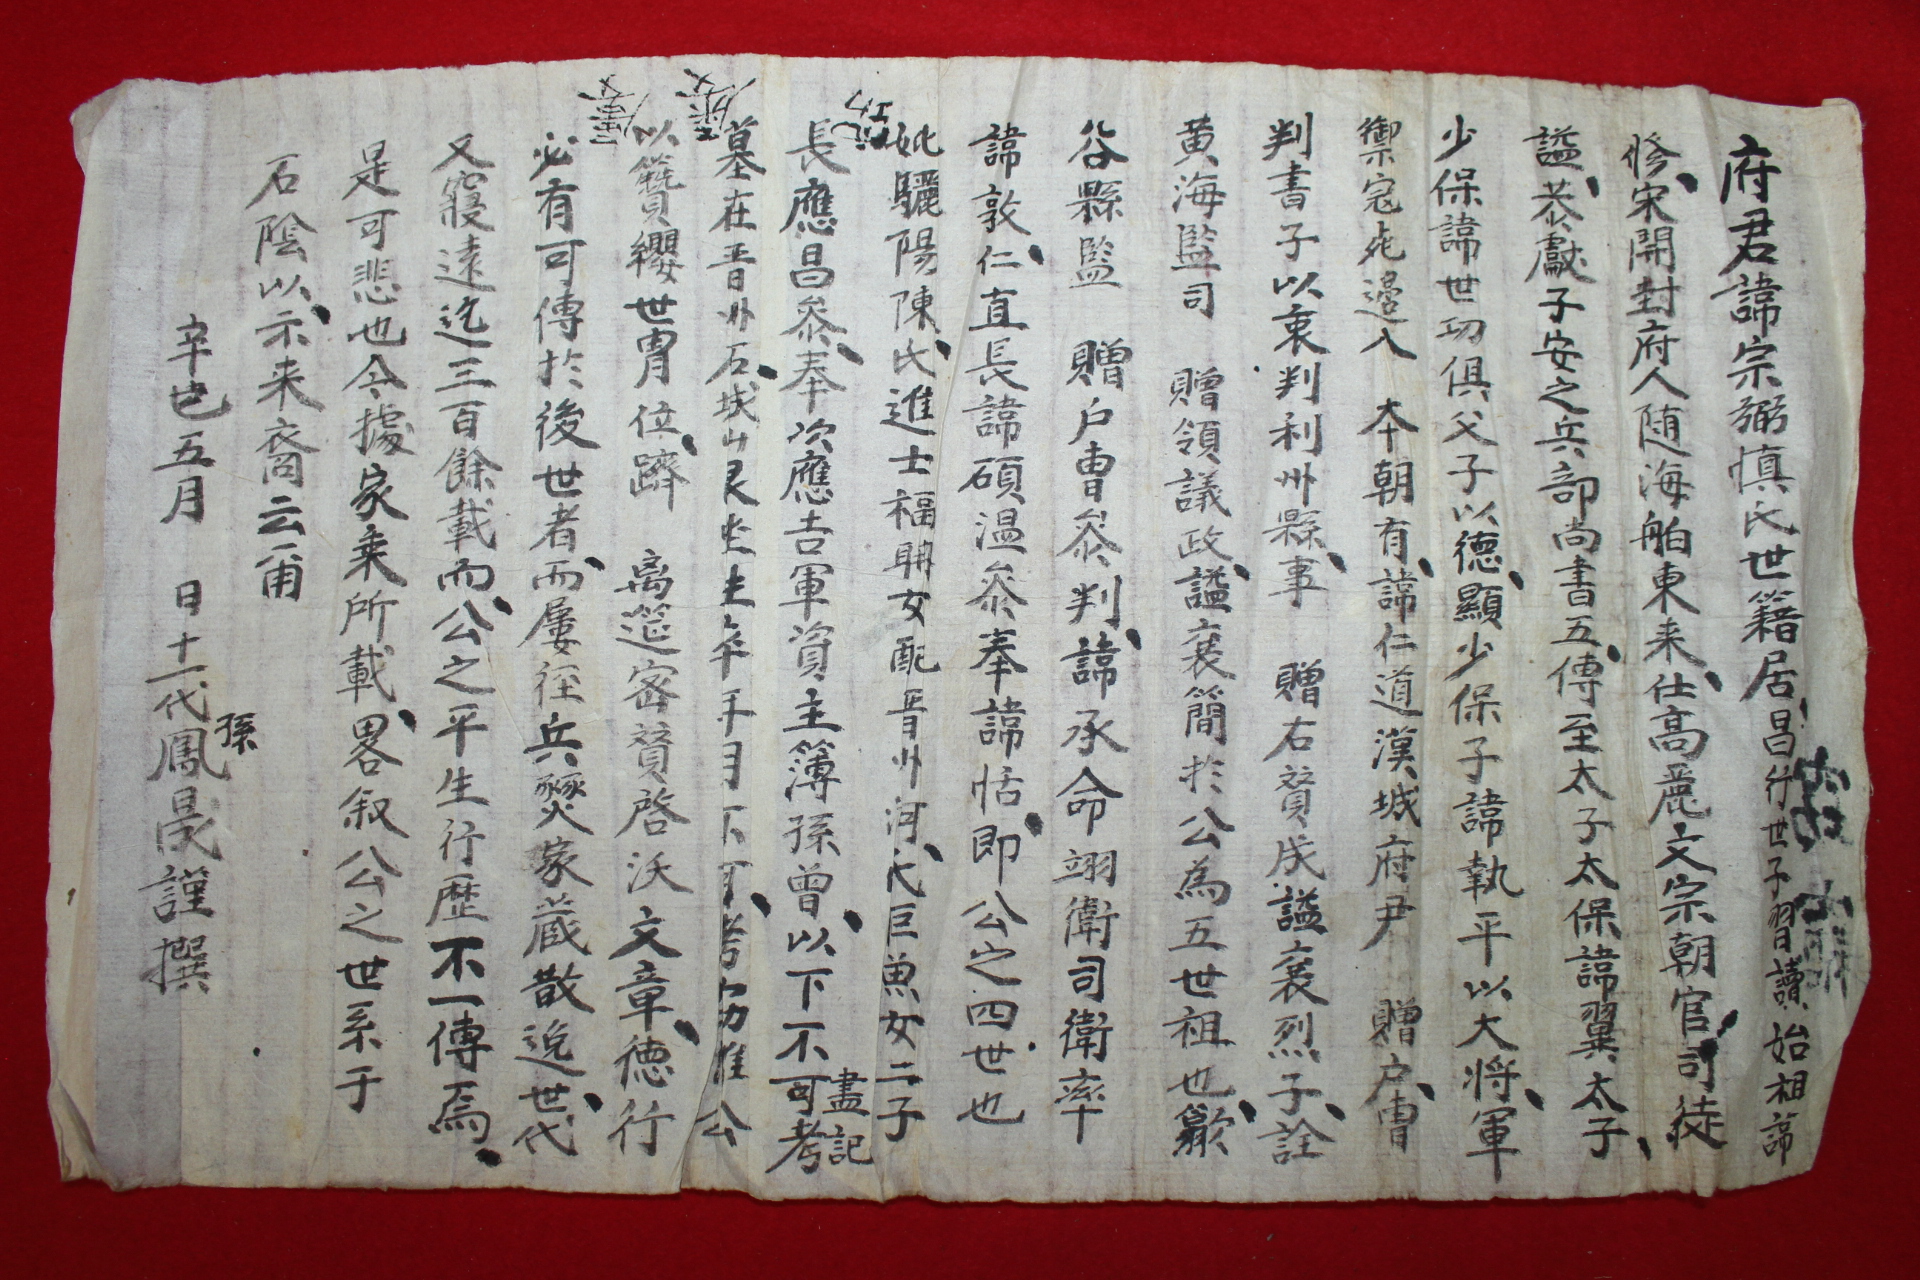 府君諱宗弼愼氏世籍居昌行世子習讀始祖諱
修宋開封府人随海舶東来仕高麗文宗朝官司徒
謚恭獻子安之兵部尚書五傳至太子太保諱翼太子
少保諱世功俱父子以德顯少保子諱執平以大将軍
禦寇死邊入 本朝有諱仁道漢城府尹 贈户曺
判書子以衷判利州縣事 贈右贊成謚襄烈子詮
黄海監司 贈領議政謚襄簡於公為五世祖也
谷縣監 贈户曺叅判諱承命翊衛司衛率
諱敦仁直長諱碩温叅奉諱恬即公之四世也
妣驪陽陳氏進士福開女配晋州河氏巨魚女二子
長應昌叅奉次應吉軍資主簿孫曾以下不可考
盡記
墓在晋州石城山艮坐生卒年月不可考 惟公
以簪纓世胄位躋 离筵密贊啓沃文章德行
必有可傳於後世者而屢徑兵燹家蔵散逸世代
又寢遠迄三百餘載而公之平生行歷不一傳焉
是可悲也今據家乘所載畧叙公之世系于
石陰以示来裔云甫
辛 五月 日十一代孫鳳 謹撰